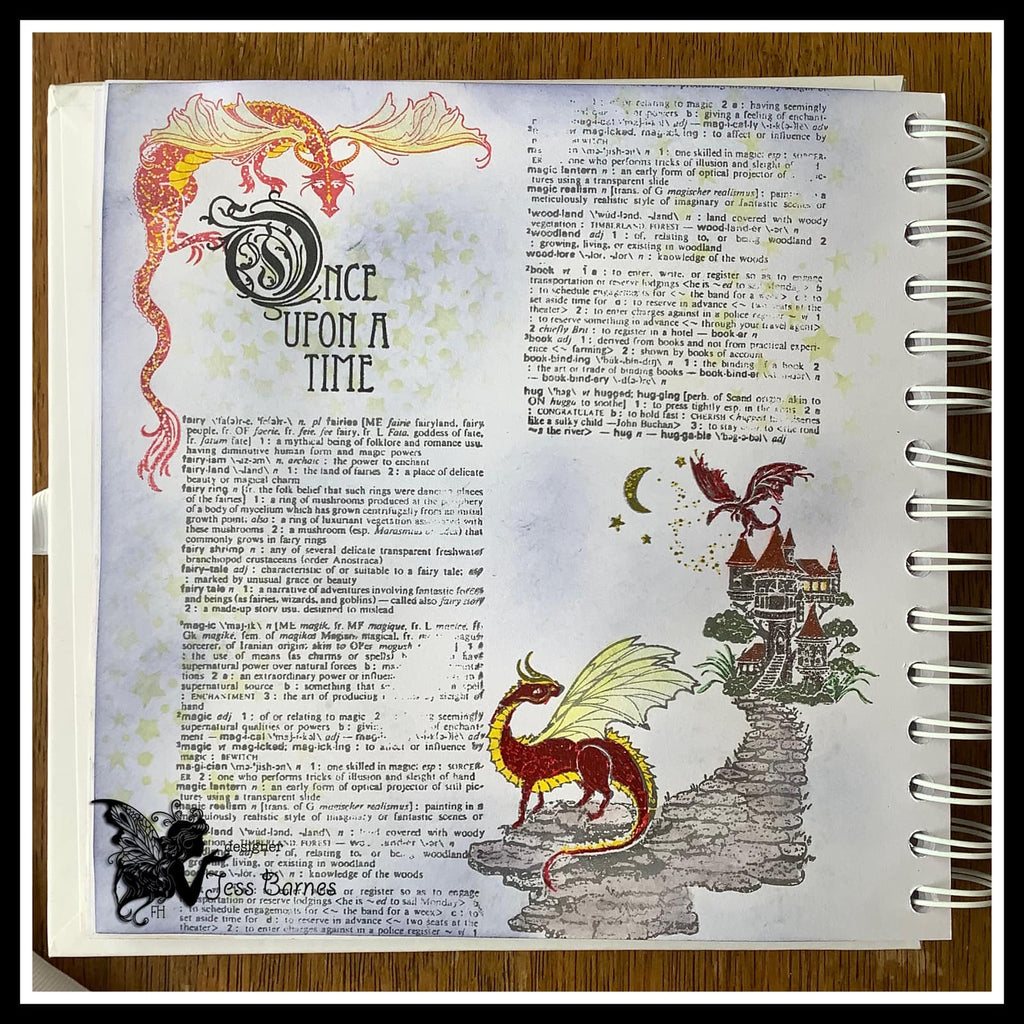 ONCE
UPON A
TIME
fairy n, pl fairies [ME fairie fairyland, fairy
people, fr. OF faerie, fr. feie, fee fairy, fr. L Fata, goddess of fate,
fr. fatum fate] 1 : a mythical being of folklore and romance usu.
having diminutive human form and magic powers
n, archaic : the power to enchant
fairy-land \-,land\ n 1 : the land of fairies 2 : a place of delicate
beauty or magical charm
fairy ring n [fr. the folk belief that such rings were dancing places
of the fairies] 1 : a ring of mushrooms produced at the periphery
of a body of mycelium which has grown centrifugally from an initial
growth point; also : a ring of luxuriant vegetation associated with
these mushrooms 2 : a mushroom (esp. Marasmius that
commonly grows in fairy rings
fairy shrimp n : any of several delicate transparent freshwater
branchiopod crustaceans (order Anostraca)
fairy-tale adj : characteristic of or suitable to a fairy tale; esp
: marked by unusual grace or beauty
fairy tale n 1 : a narrative of adventures involving fantastic forces
and beings (as fairies, wizards, and goblins) — called also fairy story
2 : a made-up story usu. designed to mislead
¹mag-ic \'maj-ik\ n [ME magik, fr. MF magique, fr. L magice, fr.
Gk magikē, fem. of magikos Magian, magical, fr.
sorcerer, of Iranian origin; akin to OPer
: the use of means (as charms or spells) have
supernatural power over natural forces b :
tions 2 a : an extraordinary power or influence
supernatural source b : something that spell
: ENCHANTMENT 3 : the art of producing of
hand
²magic adj 1 : of or relating to magic 2 seemingly
supernatural qualities or powers b : giving of enchant-
ment — adj — adv
³magic vt mag-icked; mag-ick-ing : to affect or influence by
magic : BEWITCH
ma-gi-cian \mə-'jish-ən\ n 1 : one skilled in magic; esp : SORCER-
ER 2 : one who performs tricks of illusion and sleight of hand
magic lantern n : an early form of optical projector of still pic-
tures using a transparent slide
magic realism n [trans. of G magischer realismus] : painting in a
meticulously realistic style of imaginary or fantastic scenes or
land \'wud-lənd, -,land\ n : land covered with woody
: TIMBERLAND, FOREST — n
adj : of, relating to, or being woodland
growing, living, or existing in woodland
n : knowledge of the woods
designer
Jess Barnes
FH
or register so as to engage
transportation or reserve lodgings <he is ~ed to sail Monday> b
: to schedule engagements for <~ the band for a week> c : to
set aside time for d : to reserve in advance <~ two seats at the
theater> 2 : to enter charges against in a police register ~ vi 1
1 : of or relating to magic 2 a : having seemingly
or powers b : giving a feeling of enchant-
adj — mag-i-cal-ly adv
vt mag-icked; mag-ick-ing : to affect or influence by
BEWITCH
n 1 : one skilled in magic; esp : SORCER-
ER one who performs tricks of illusion and sleight of
magic lantern n : an early form of optical projector of
tures using a transparent slide
magic realism n [trans. of G magischer realismus] : painting a
meticulously realistic style of imaginary or fantastic scenes or
¹wood-land \'wud-lənd, -,land\ n : land covered with woody
vegetation : TIMBERLAND, FOREST — wood-land-er n
²woodland adj 1 : of, relating to, or being woodland 2
: growing, living, or existing in woodland
wood-lore n : knowledge of the woods
²book vt 1 a : to enter, write, or register so as to engage
transportation or reserve lodgings <he is ~ed to sail Monday> b
: to schedule engagements for <~ the band for a week> c : to
set aside time for d : to reserve in advance <~ two seats at the
theater> 2 : to enter charges against in a police register ~ vi 1
: to reserve something in advance <~ through your travel agent>
2 chiefly Brit : to register in a hotel — book-er n
³book adj 1 : derived from books and not from practical experi-
ence <~ farming> 2 : shown by books of account
book-bind-ing n 1 : the binding of a book 2
: the art or trade of binding books — book-bind-er n
— book-bind-ery n
hug \'həg\ vt hugged; hug-ging [perh. of Scand origin; akin to
ON hugga to soothe] 1 : to press tightly esp. in the arms 2 a
: CONGRATULATE b : to hold fast : CHERISH
like a sulky child —John Buchan> 3 : to stay close to <the road
~s the river> — hug n — hug-ga-ble adj